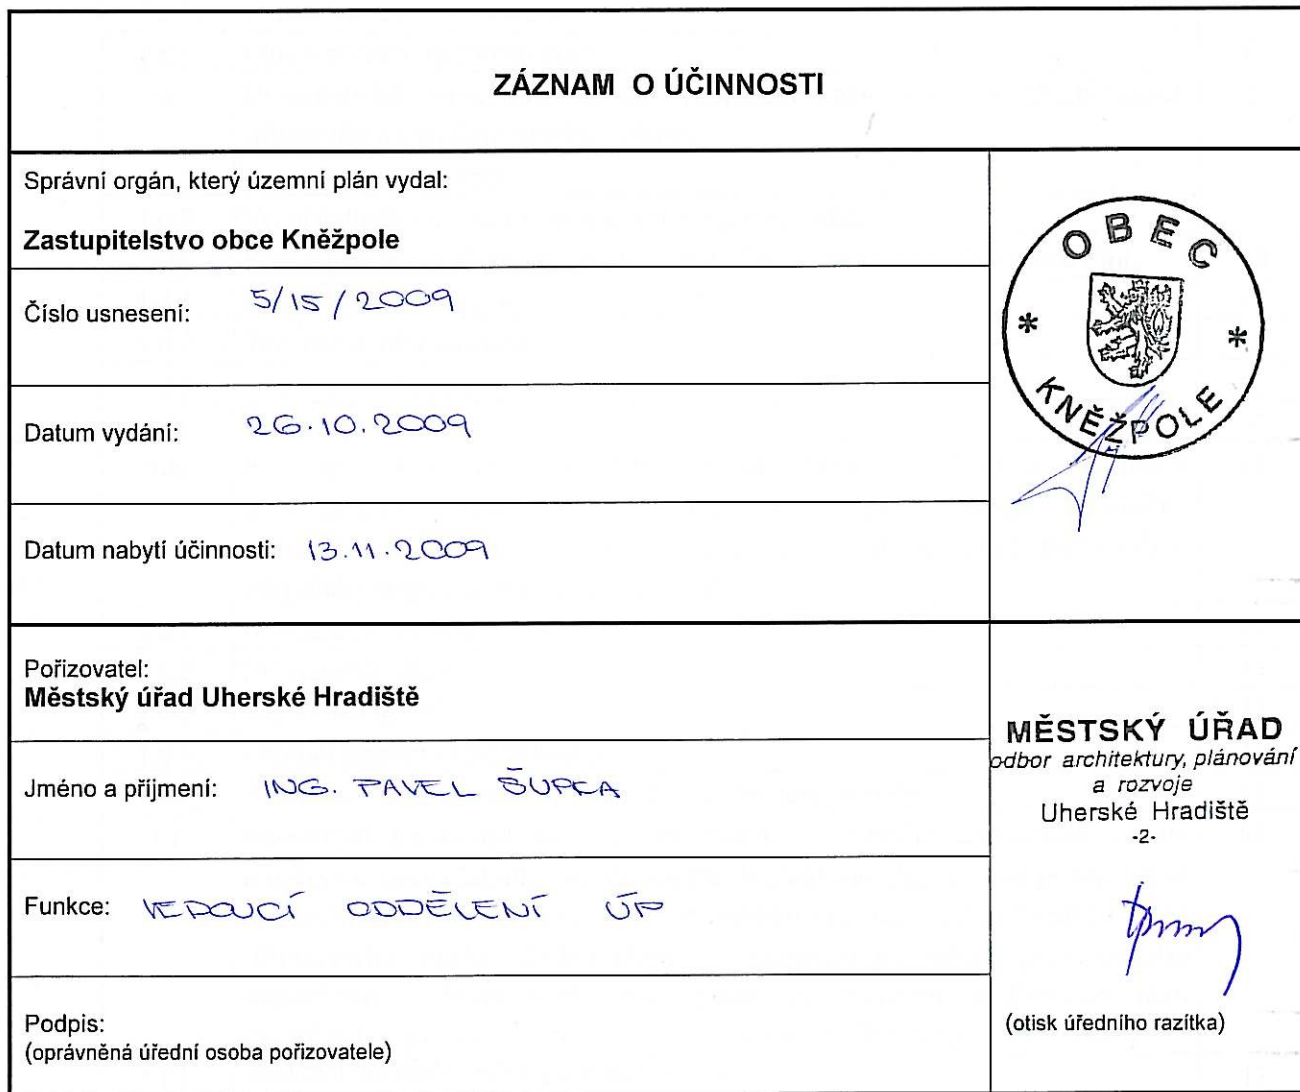 ZÁZNAM O ÚČINNOSTI
Správní orgán, který územní plán vydal:
Zastupitelstvo obce Kněžpole
Číslo usnesení: 5/15/2009
Datum vydání: 26.10.2009
Datum nabytí účinnosti: 13.11.2009
OBEC
* *
KNĚŽPOLE
Pořizovatel:
Městský úřad Uherské Hradiště
Jméno a příjmení: ING. PAVEL ŠUPKA
Funkce: VEDOUCÍ ODDĚLENÍ ÚP
Podpis:
(oprávněná úřední osoba pořizovatele)
MĚSTSKÝ ÚŘAD
odbor architektury, plánování
a rozvoje
Uherské Hradiště
-2-
(otisk úředního razítka)